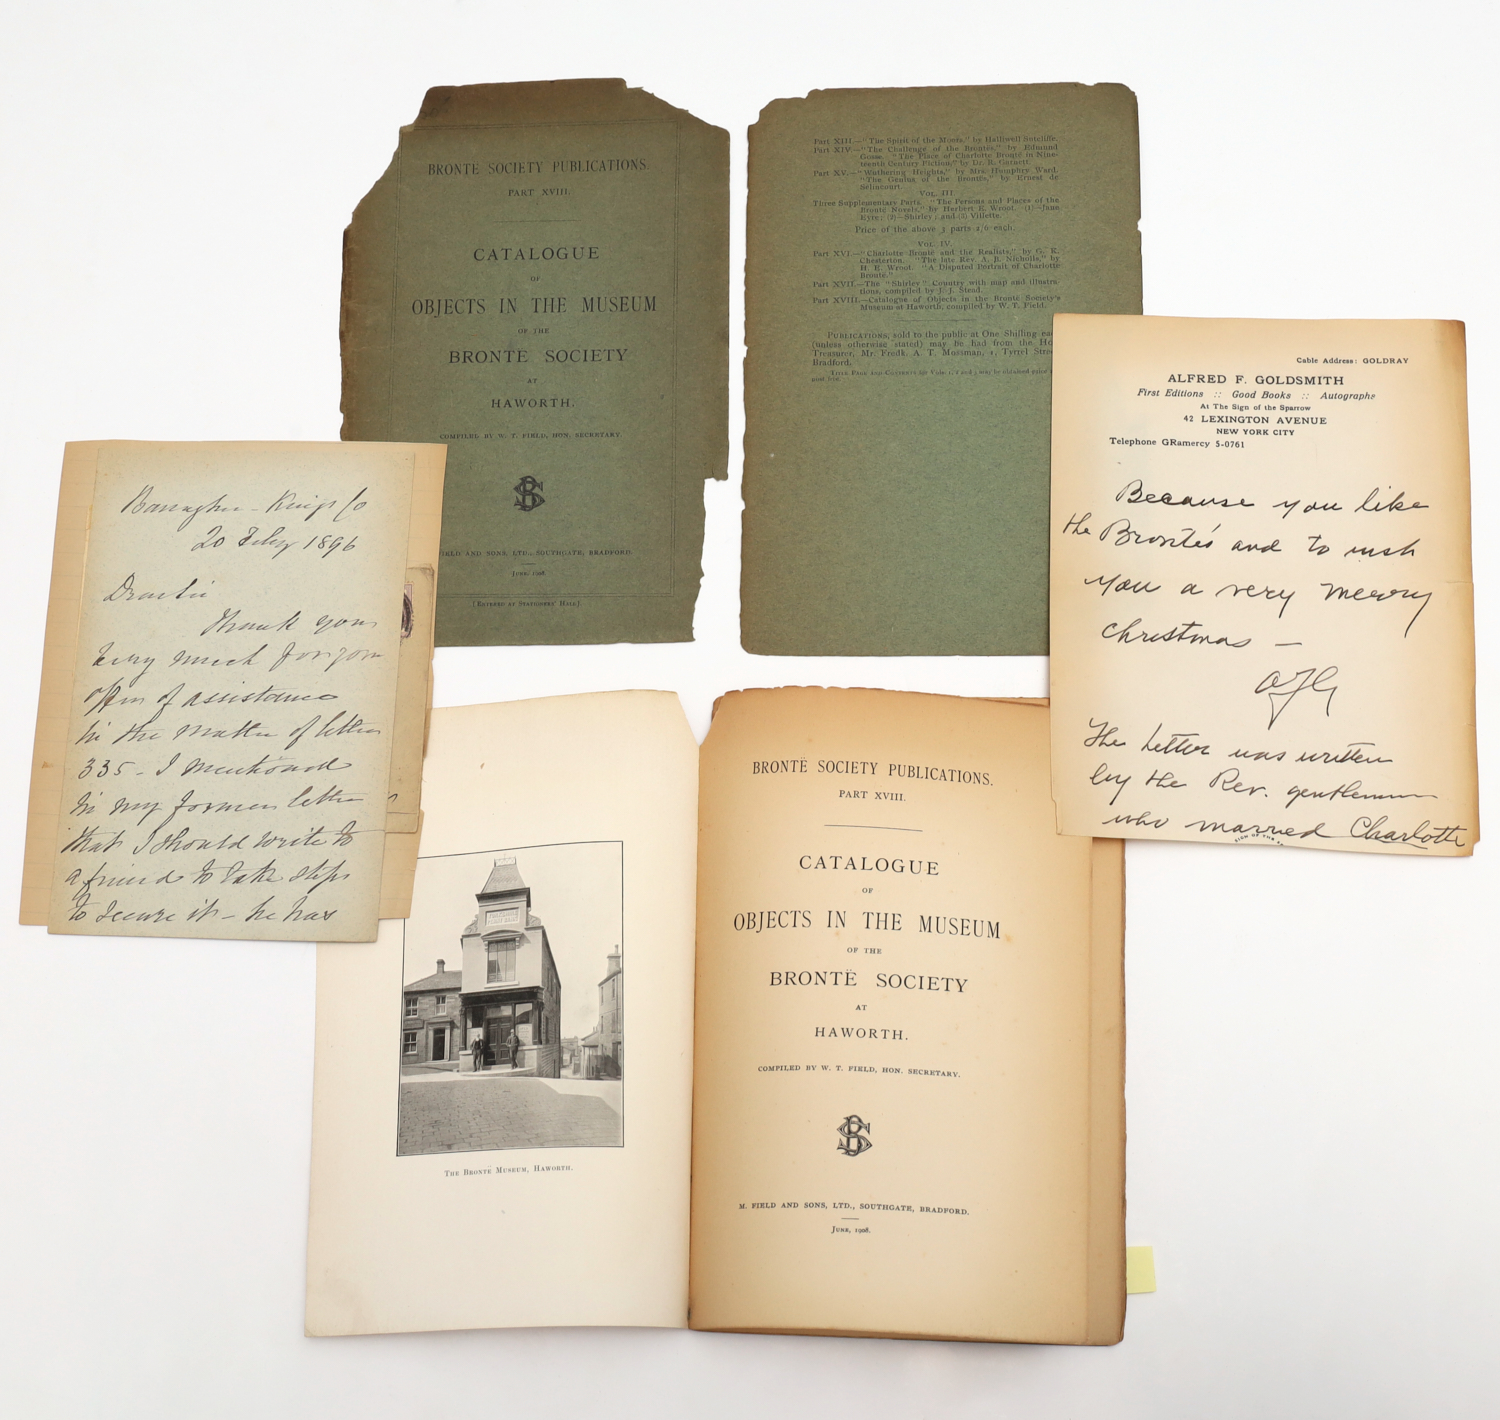 BRONTË SOCIETY PUBLICATIONS.
PART XVIII.
CATALOGUE
OF
OBJECTS IN THE MUSEUM
OF THE
BRONTË SOCIETY
AT
HAWORTH.
COMPILED BY W. T. FIELD, HON. SECRETARY.
BS
FIELD AND SONS, LTD., SOUTHGATE, BRADFORD.
JUNE, 1908.
[ENTERED AT STATIONERS' HALL].
Part XIII.—"The Spirit of the Moors," by Halliwell Sutcliffe.
Part XIV.—"The Challenge of the Brontës," by Edmund
Gosse. "The Place of Charlotte Brontë in Nine-
teenth Century Fiction," by Dr. R. Garnett.
Part XV.—"Wuthering Heights," by Mrs. Humphry Ward.
"The Genius of the Brontës," by Ernest de
Selincourt.
VOL. III.
Three Supplementary Parts. "The Persons and Places of the
Brontë Novels," by Herbert E. Wroot. (1)—Jane
Eyre; (2)—Shirley; and (3) Villette.
Price of the above 3 parts 2/6 each.
VOL. IV.
Part XVI.—"Charlotte Brontë and the Realists," by G. K.
Chesterton. "The late Rev. A. B. Nicholls," by
H. E. Wroot. "A Disputed Portrait of Charlotte
Brontë."
Part XVII.—The "Shirley" Country with map and illustra-
tions, compiled by J. J. Stead.
Part XVIII.—Catalogue of Objects in the Brontë Society's
Museum at Haworth, compiled by W. T. Field.
PUBLICATIONS, sold to the public at One Shilling ea
(unless otherwise stated) may be had from the Ho
Treasurer, Mr. Fredk. A. T. Mossman, 1, Tyrrel Stre
Bradford.
TITLE PAGE AND CONTENTS for Vols. 1, 2 and 3 may be obtained price
post free.
Cable Address: GOLDRAY
ALFRED F. GOLDSMITH
First Editions :: Good Books :: Autographs
At The Sign of the Sparrow
42 LEXINGTON AVENUE
NEW YORK CITY
Telephone GRamercy 5-0761
Because you like
the Brontës and to wish
you a very merry
Christmas —
AFG
The letter was written
by the Rev. gentleman
who married Charlotte
Banagher – Kings Co
20 Feby 1896
Dear Sir
Thank you
very much for your
offer of assistance
in the matter of letter
335 – I mentioned
in my former letter
that I should write to
a friend to take steps
to secure it – he has
THE BRONTË MUSEUM, HAWORTH.
BRONTË SOCIETY PUBLICATIONS.
PART XVIII.
CATALOGUE
OF
OBJECTS IN THE MUSEUM
OF THE
BRONTË SOCIETY
AT
HAWORTH.
COMPILED BY W. T. FIELD, HON. SECRETARY.
BS
M. FIELD AND SONS, LTD., SOUTHGATE, BRADFORD.
JUNE, 1908.